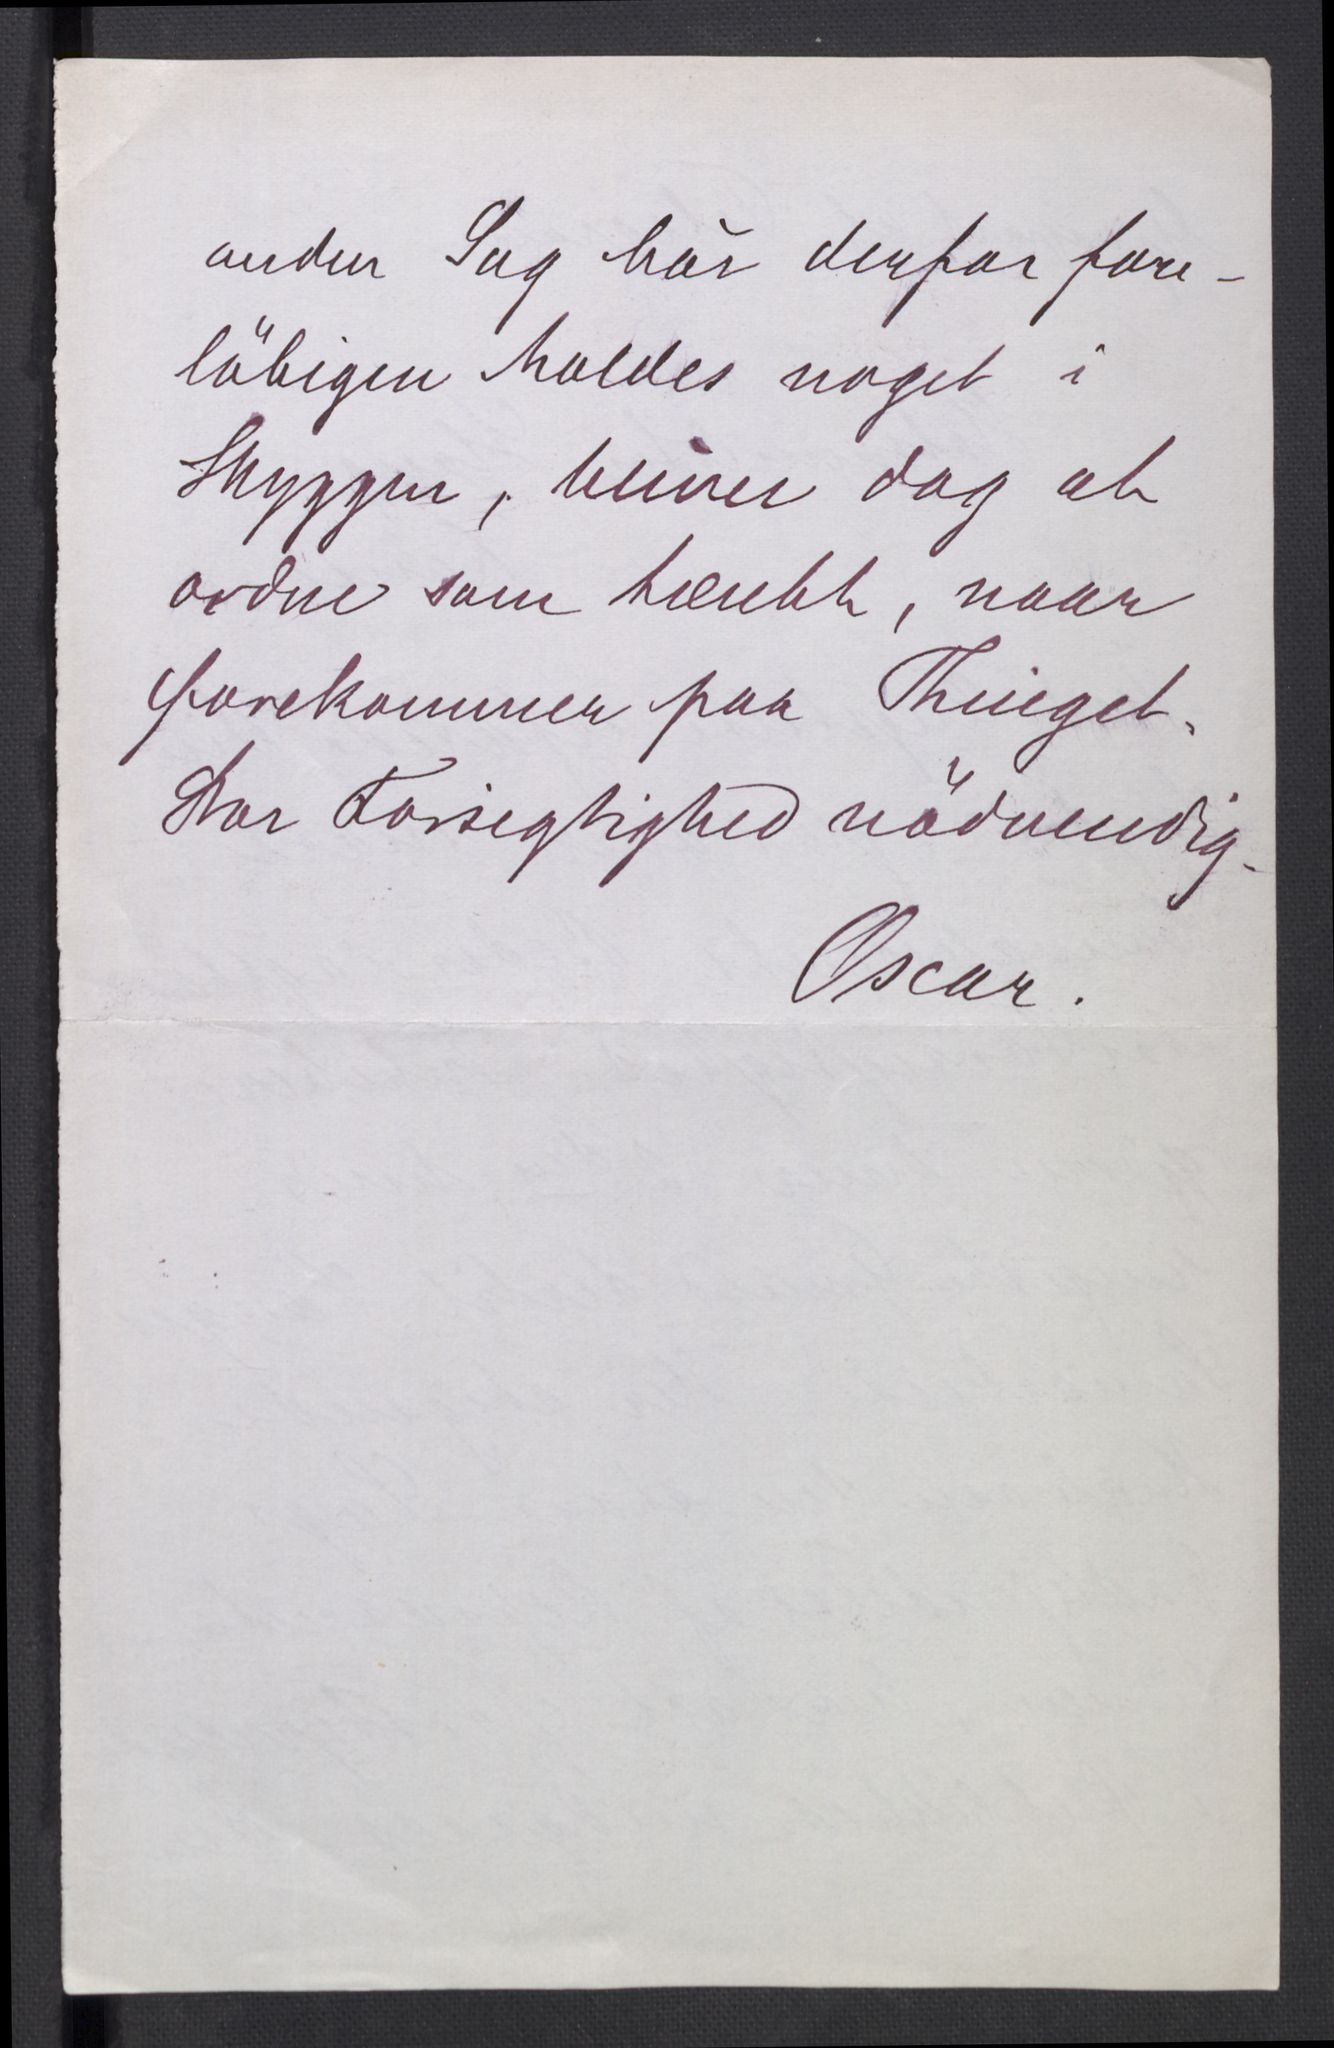 anden Sag bör derfor fore-
löbigen holdes noget i
Skyggen, bliver dog at
ordne som tænkt, naar
forekommer paa Thinget.
Stor Forsigtighed nödvendig.
Oscar.